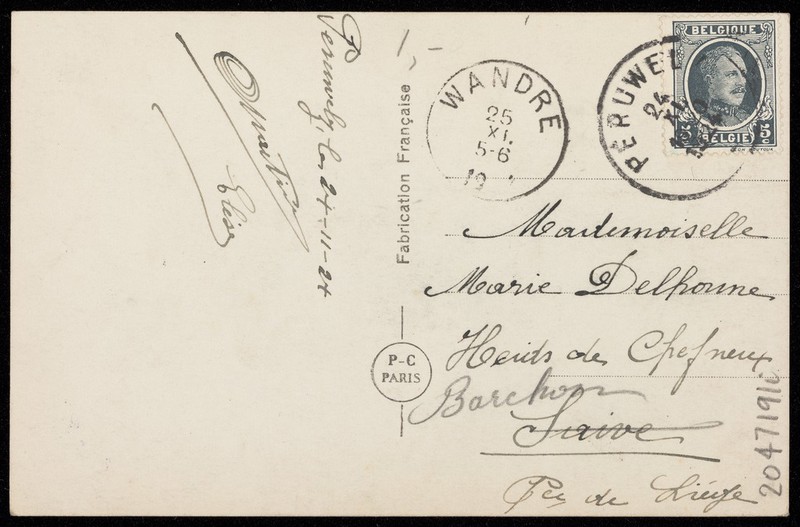 Peruwelz, le 24-11-24
Elise
1,-
Fabrication Française
P-C
PARIS
WANDRE
25
XI
5-6
19
PÉRUWEL
24
XI
BELGIQUE
5c BELGIË 5c
Mademoiselle
Marie Delhonne
Heids de Chefneux
Barchon
Saive
Pce de Liége
2047191